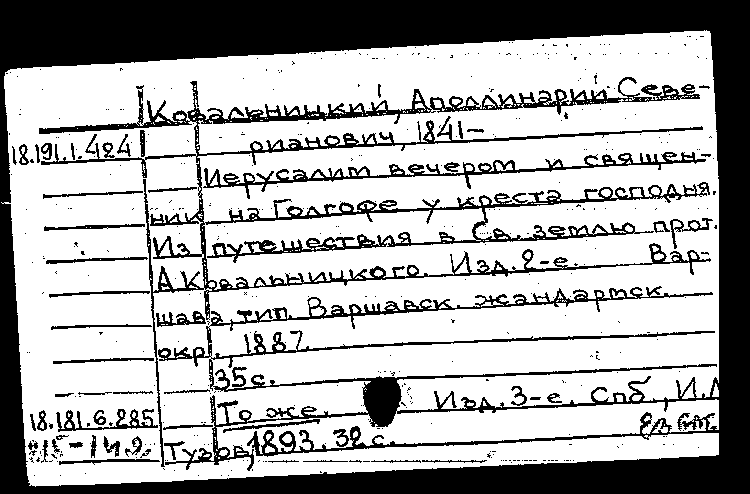 Ковальницкий, Аполлинарий Севе-
18.191.1.424 рианович, 1841-
Иерусалим вечером и священ-
ник на Голгофе у креста господня.
Из путешествия в Св. землю прот.
А.Ковальницкого. Изд. 2-е. Вар-
шава, тип. Варшавск. жандармск.
окр., 1887.
35с.
18.181.6.285 То же. Изд. 3-е. Спб., И.Л
Тузов, 1893. 32с.